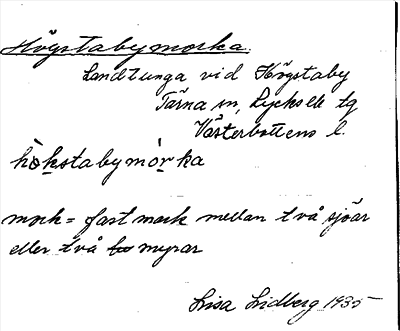 Högstabymorka.
Landtunga vid Högstaby
Tärna sn, Lycksele tg
Västerbottens l.
hökstabymòrka
mork = fast mark mellan två sjöar
eller två myrar
Lisa Lidberg 1935